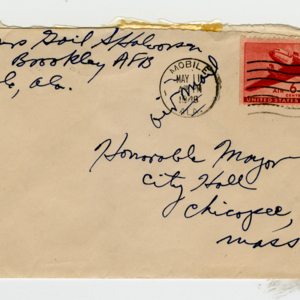 Mrs Gail S Halvorsen
Brookley AFB
Ala.
MOBILE
MAY 11
1948
ALA.
air mail
AIR
6
CENTS
UNITED STATES
Honorable Mayor
City Hall
Chicopee,
Mass